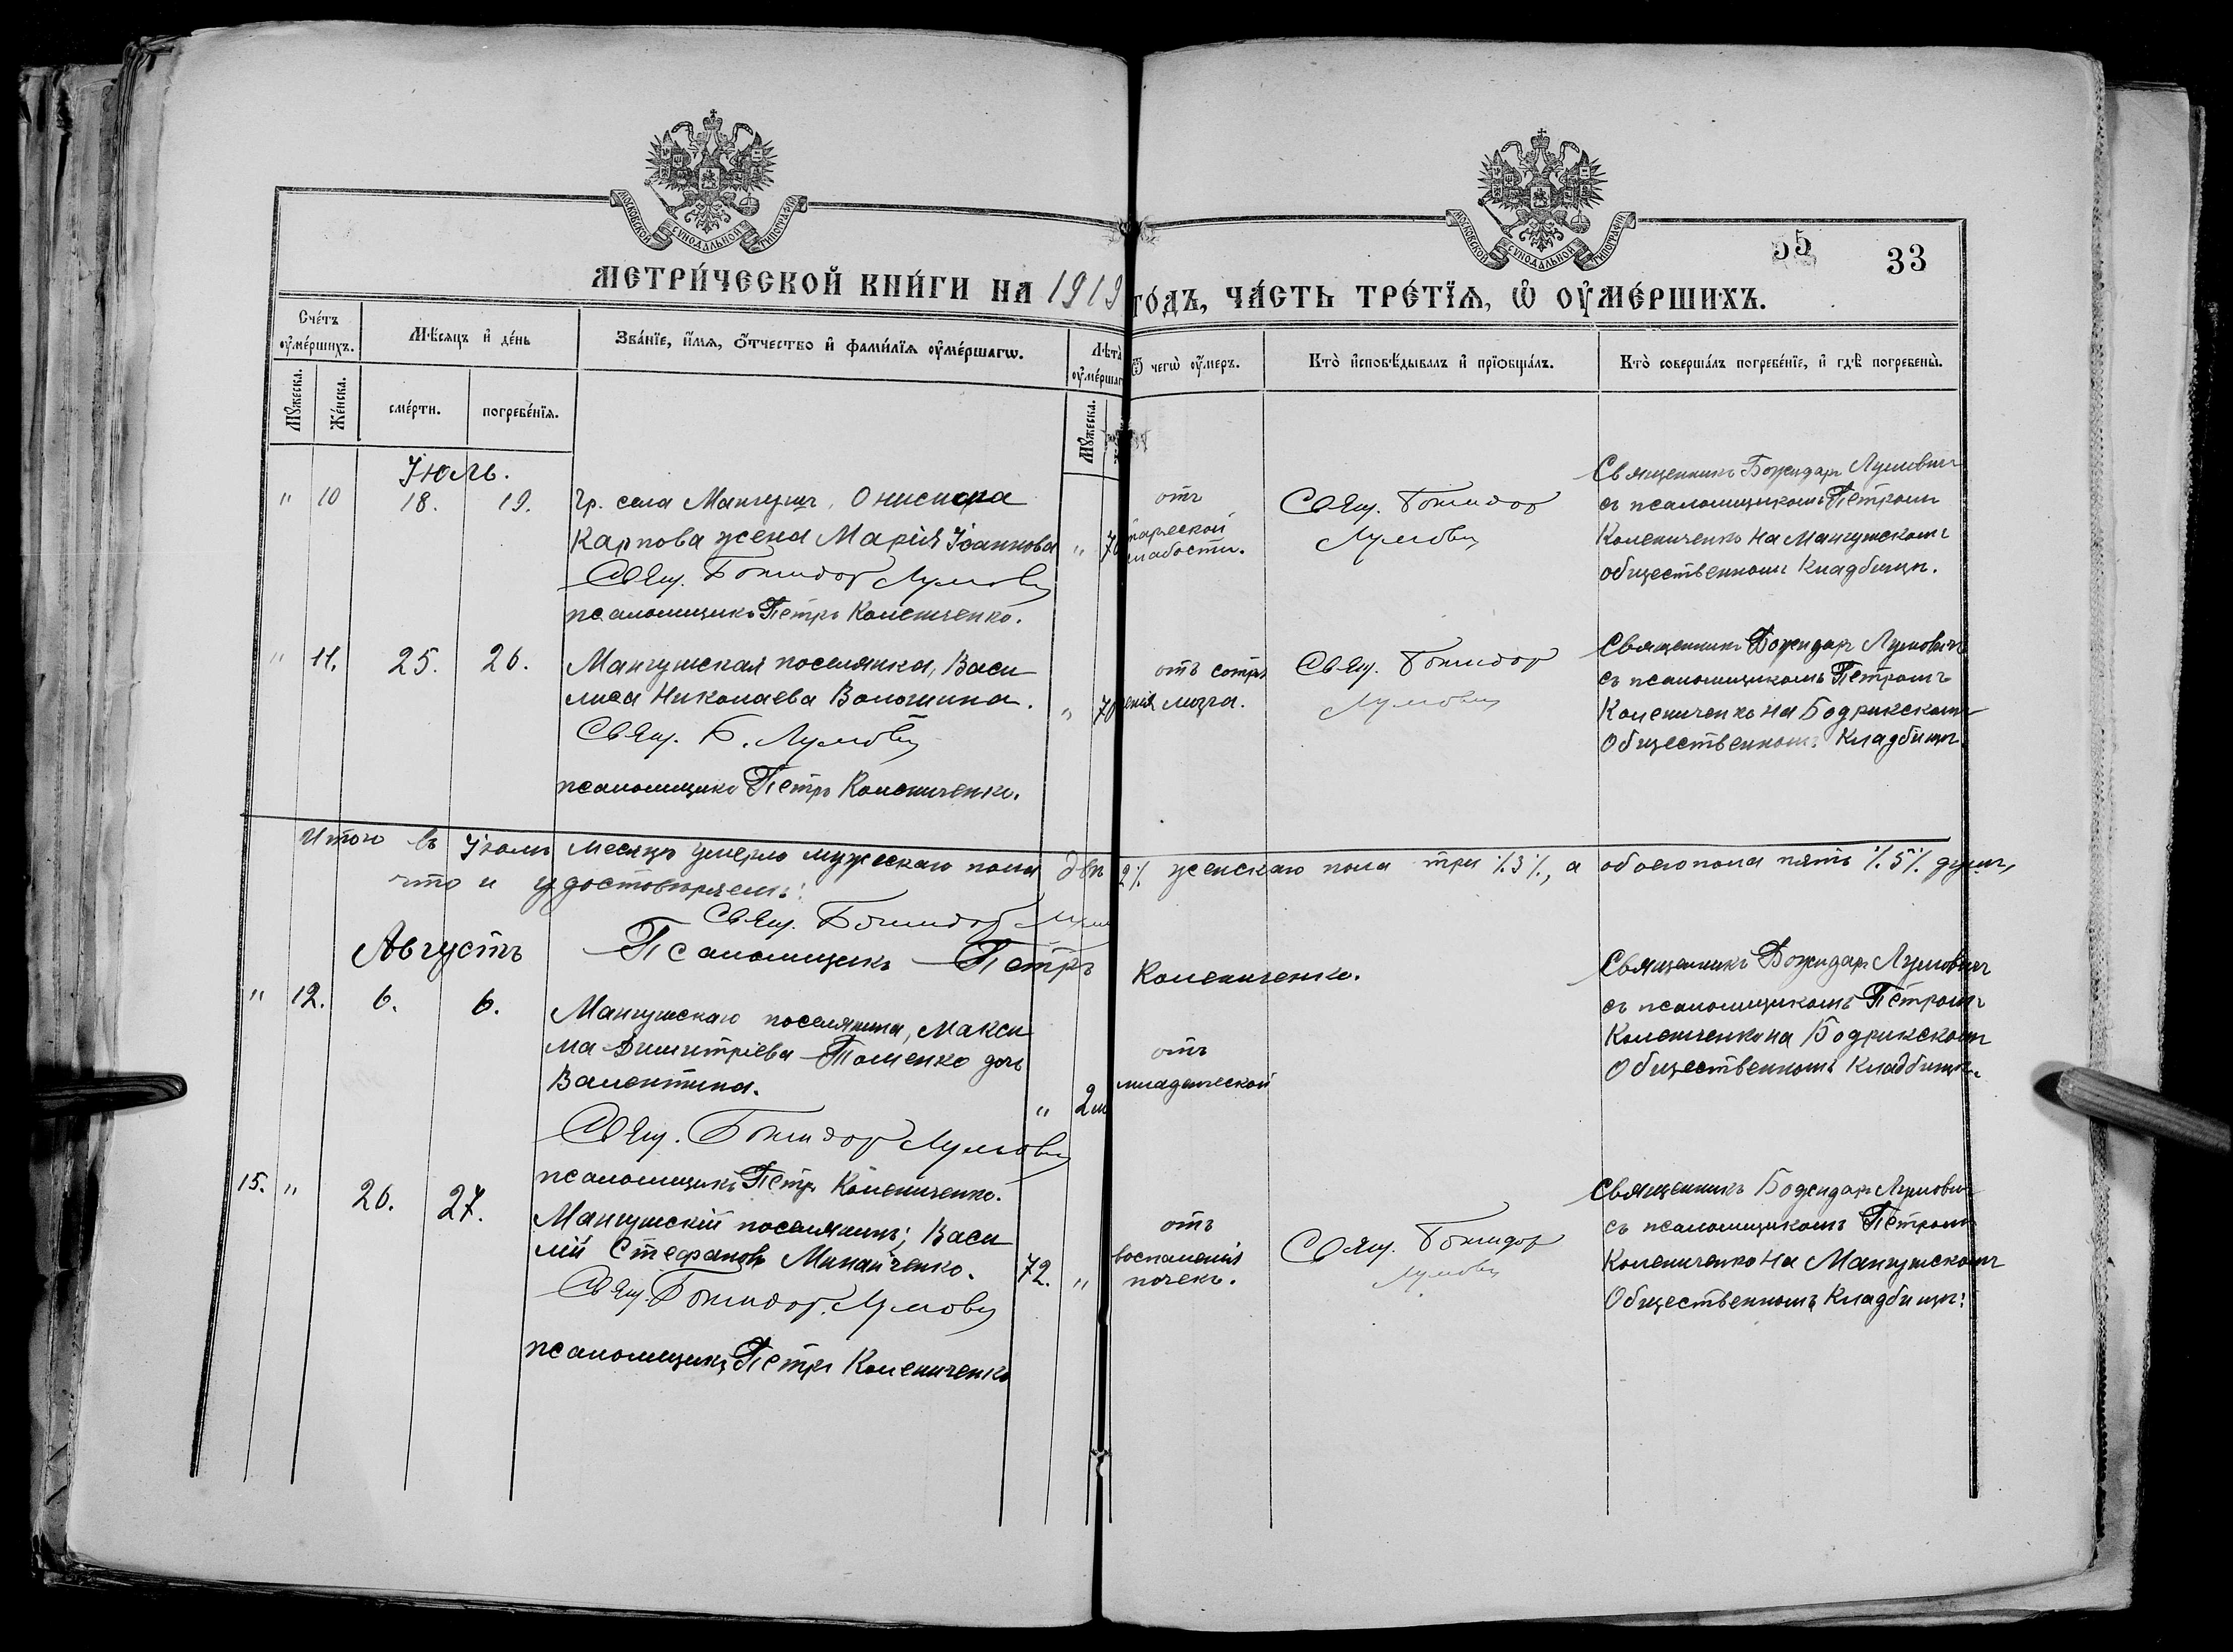 МОСКОВСКОЙ СѴНОДАЛЬНОЙ ТИПОГРАФІИ
МОСКОВСКОЙ СѴНОДАЛЬНОЙ ТИПОГРАФІИ
33
МЕТРИ́ЧЕСКОЙ КНИ́ГИ НА 1919
ГО́ДЪ, ЧА́СТЬ ТРЕ́ТЇѦ, Ѡ҆ ОУ҆МЕ́РШИХЪ.
Сче́тъ оу҆ме́ршихъ.
Мѣ́сяцъ и҆ де́нь
Зва́нїе, и҆́мѧ, ѻ҆́тчество и҆ фами́лїѧ оу҆ме́ршагѡ.
Лѣ́та оу҆ме́ршаг
Ѿ чегѡ̀ оу҆́меръ.
Кто̀ и҆сповѣ́дывалъ и҆ прїѡбща́лъ.
Кто̀ соверша́лъ погребе́нїе, и҆ гдѣ̀ погребены̀.
Мꙋ́жеска.
Же́нска.
сме́рти.
погребе́нїѧ.
Мꙋ́жеска.
Іюль.
" 10 18. 19. Гр. села Мангушъ, Онисифора
Карпова жена Марія Іоаннова " 70
Свящ. Божидар Лумович
псаломщикъ Петръ Колениченко.
отъ
старческой
слабости.
Свящ. Божидар
Лумович
Священникъ Божидаръ Лумовичъ
съ псаломщикомъ Петромъ
Колениченко на Мангушскомъ
общественномъ кладбищѣ.
" 11. 25. 26. Мангушская поселянка, Васи
лиса Николаева Волошина. " 70
Свящ. Б. Лумович
псаломщикъ Петръ Колениченко.
отъ сотря
сенія мозга.
Свящ. Божидар
Лумович
Священникъ Божидаръ Лумовичъ
съ псаломщикомъ Петромъ
Колениченко на Бодрикскомъ
Общественномъ Кладбищѣ.
Итого въ Іюлѣ месяцѣ умерло мужескаго пола двѣ 2% женскаго пола три %3%, а обоего пола пять %5% душъ,
что и удостовѣряемъ:
Свящ. Божидар Лум
Псаломщикъ Петръ Колениченко.
Августъ
" 12. 6. 6. Мангушскаго поселянина, Макси
ма Димитріева Томенко дочь
Валентина. " 2м
Свящ. Божидар Лумович
псаломщикъ Петръ Колениченко.
отъ
младенческой
Священникъ Божидаръ Лумовичъ
съ псаломщикомъ Петромъ
Колениченко на Бодрикскомъ
Общественномъ Кладбищѣ.
15. " 26. 27. Мангушскій поселянинъ, Васи
лій Стефановъ Минайченко. 72. "
Свящ. Божидар Лумович
псаломщикъ Петръ Колениченко
отъ
воспаленія
почекъ.
Свящ. Божидар
Лумович
Священникъ Божидаръ Лумовичъ
съ псаломщикомъ Петромъ
Колениченко на Мангушскомъ
Общественномъ Кладбищѣ: